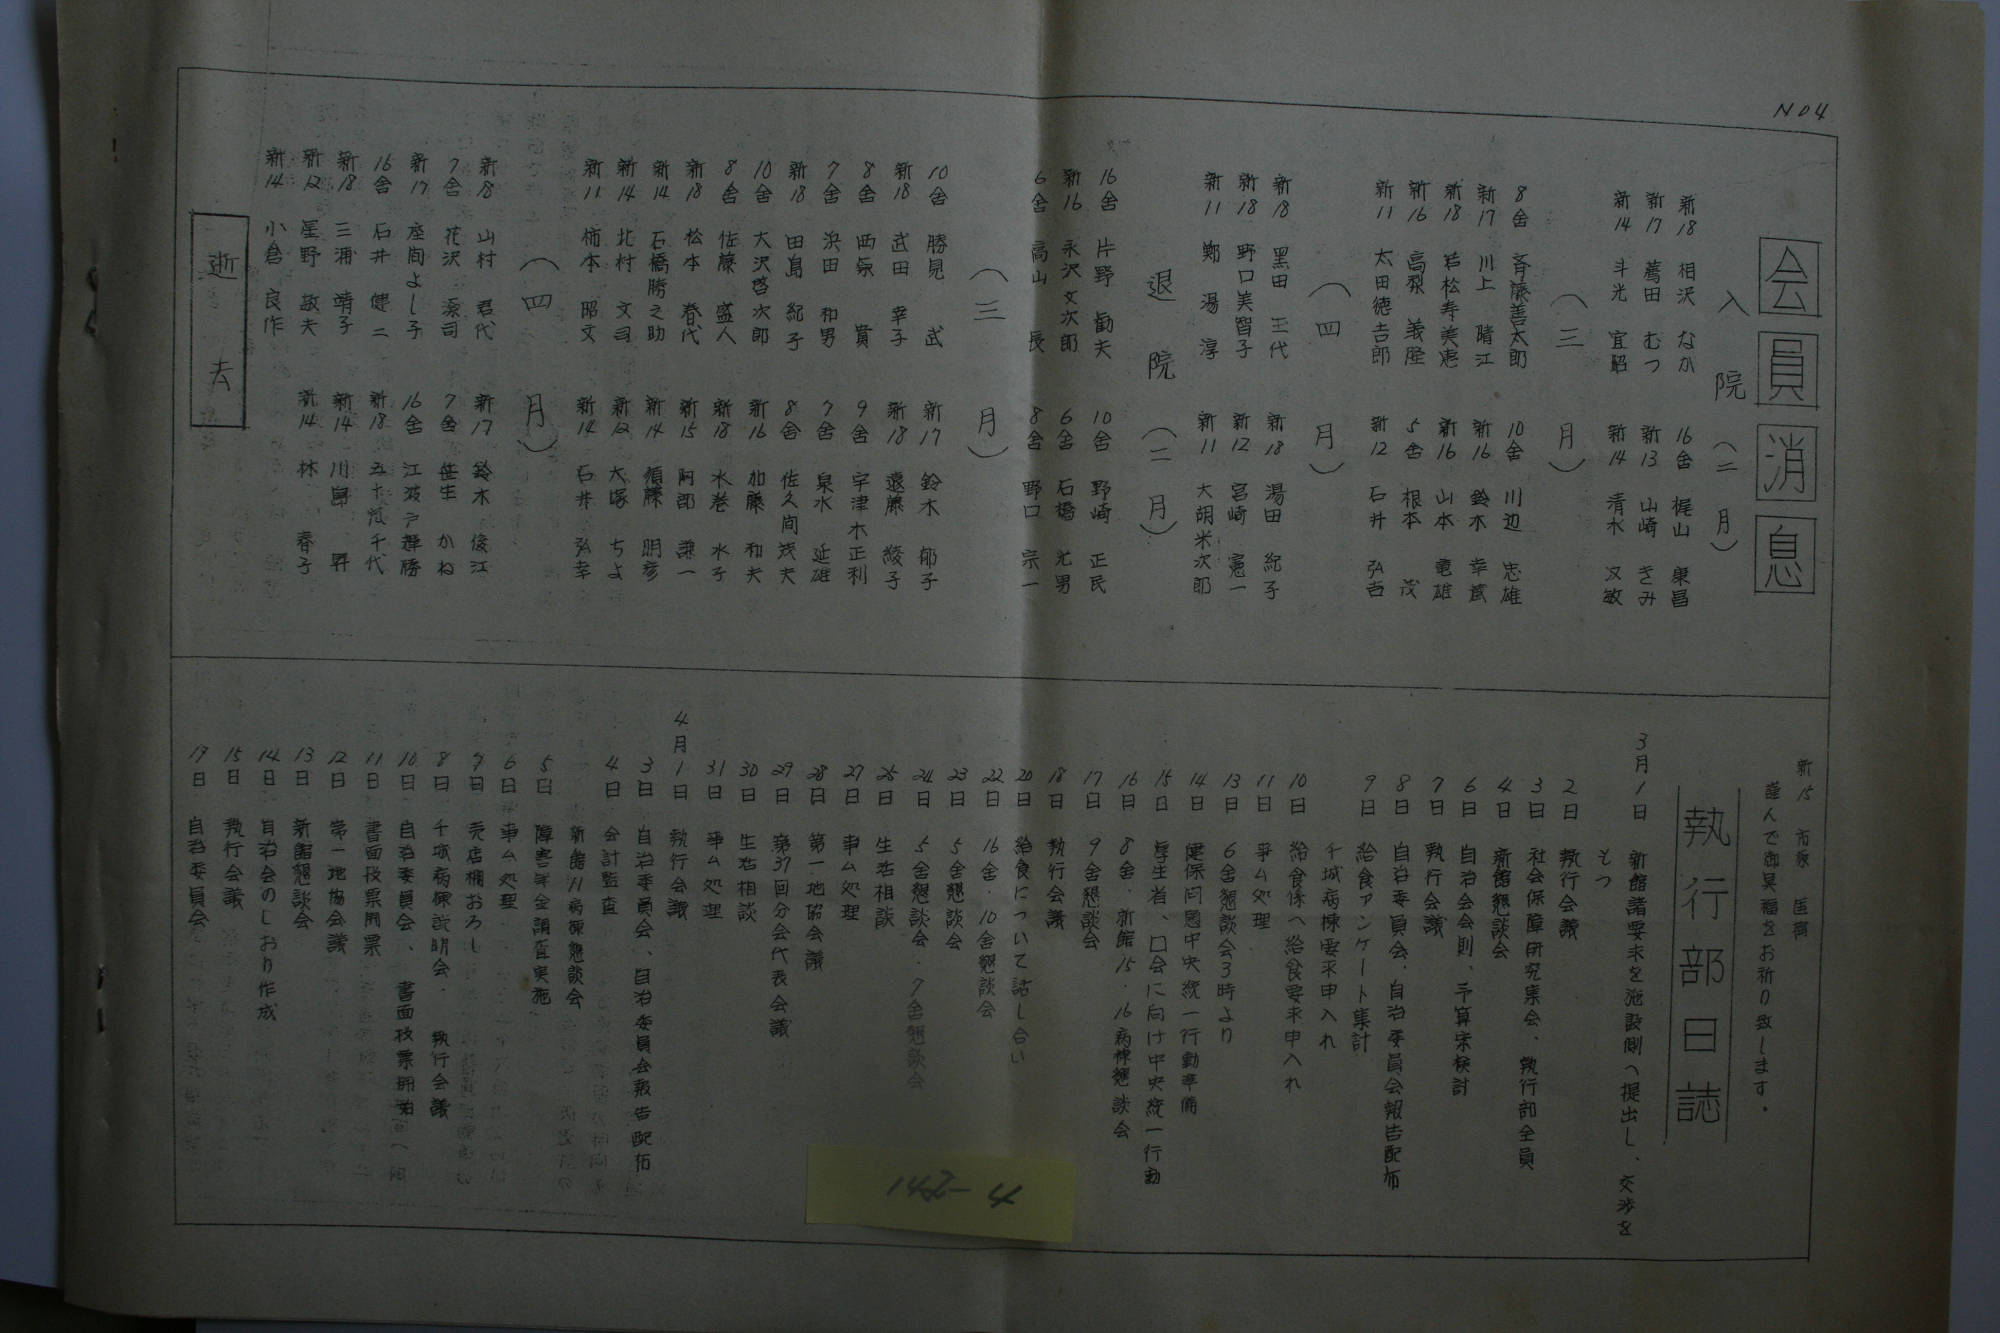 NO4
会員消息
入院（二月）
新18 相沢 なか
16舎 梶山 東昌
新17 薦田 むつ
新13 山崎 きみ
新14 斗光 宜昭
新14 清水 又敏
（三月）
8舎 斉藤善太郎
10舎 川辺 忠雄
新17 川上 晴江
新16 鈴木 幸蔵
新18 若松寿美恵
新16 山本 竜雄
新16 高梨 義隆
5舎 根本 茂
新11 太田徳吉郎
新12 石井 弘吉
（四月）
新18 黒田 玉代
新18 湯田 紀子
新18 野口美智子
新12 宮崎 憲一
新11 鄭 湯淳
新11 大胡米次郎
退院（二月）
16舎 片野 勧夫
10舎 野崎 正民
新16 永沢文次郎
6舎 石橋 光男
6舎 高山 長
8舎 野口 宗一
（三月）
10舎 勝見 武
新17 鈴木 郁子
新18 武田 幸子
新18 遠藤 綾子
8舎 西原 實
9舎 宇津木正利
7舎 浜田 和男
7舎 泉水 延雄
新18 田島 紀子
8舎 佐久間茂夫
10舎 大沢啓次郎
新16 加藤 和夫
8舎 佐藤 盛人
新18 水巻 水子
新18 松本 春代
新15 阿部 謙一
新14 石橋勝之助
新14 須藤 明彦
新14 北村 文司
新12 大塚 ちよ
新11 柿本 昭文
新14 石井 弘幸
（四月）
新18 山村 君代
新17 鈴木 俊江
7舎 花沢 源司
7舎 笹生 かね
新17 座間よし子
16舎 江波戸輝勝
16舎 石井 健二
新18 五十嵐千代
新18 三浦 靖子
新14 川島 昇
新12 星野 敏夫
新14 林 春子
新14 小倉 良作
逝去
新15 市家
謹んで御冥福をお祈り致します。
執行部日誌
3月1日 新館諸要求を施設側へ提出し、交渉を
もつ
2日 執行会議
3日 社会保障研究集会、執行部全員
4日 新館懇談会
6日 自治会会則、予算案検討
7日 執行会議
8日 自治委員会、自治委員会報告配布
9日 給食アンケート集計
千城病棟要求申入れ
10日 給食係へ給食要求申入れ
11日 事ム処理
13日 6舎懇談会3時より
14日 健保問題中央統一行動準備
15日 厚生省、口会に向け中央統一行動
16日 8舎・新館15・16病棟懇談会
17日 9舎懇談会
18日 執行会議
20日 給食について話し合い
22日 16舎・10舎懇談会
23日 5舎懇談会
24日 5舎懇談会・7舎懇談会
25日 生活相談
27日 事ム処理
28日 第一地協会議
29日 第37回分会代表会議
30日 生活相談
31日 事ム処理
4月1日 執行会議
3日 自治委員会、自治委員会報告配布
4日 会計監査
新館11病棟懇談会
5日 障害年金調査実施
6日 事ム処理
7日 売店棚おろし
8日 千城病棟説明会・執行会議
10日 自治委員会、書面投票開始
11日 書面投票開票
12日 第一地協会議
13日 新館懇談会
14日 自治会のしおり作成
15日 執行会議
17日 自治委員会
142-4